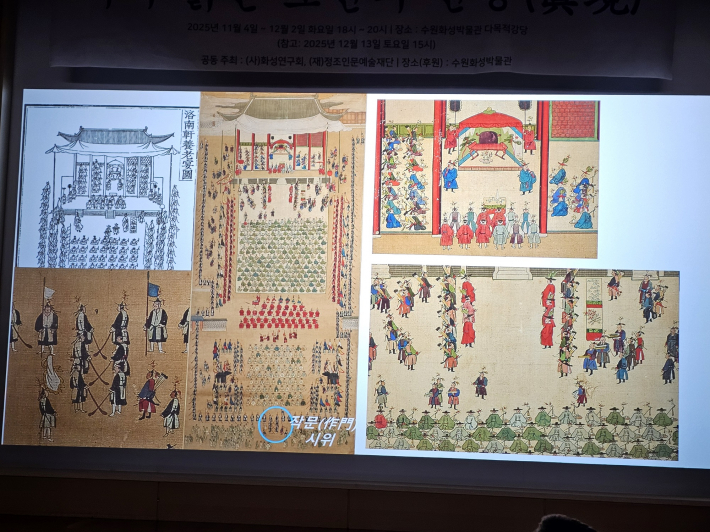 2025년 11월 4일 ~ 12월 2일 화요일 18시 ~ 20시 | 장소 : 수원화성박물관 다목적강당
(참고: 2025년 12월 13일 토요일 15시)
공동 주최 : (사)화성연구회, (재)정조인문예술재단 | 장소(후원) : 수원화성박물관
洛南軒養老宴圖
작문(作門)
시위